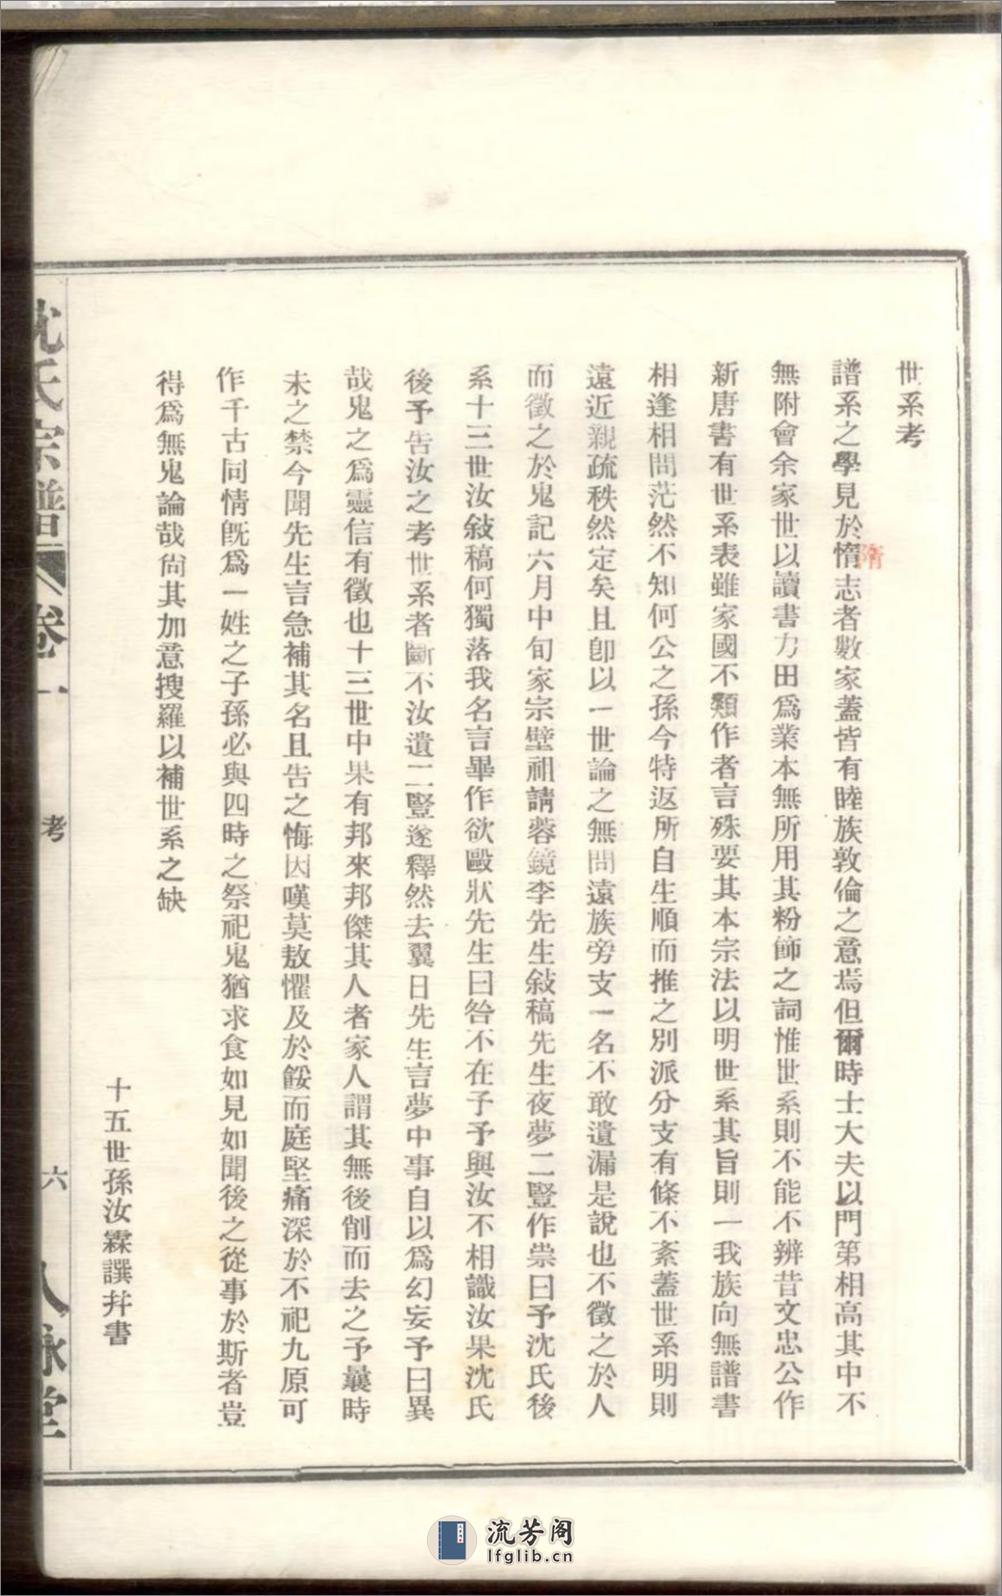 世系考
譜系之學見於惰志者數家蓋皆有睦族敦倫之意焉但爾時士大夫以門第相高其中不
隋
無附會余家世以讀書力田爲業本無所用其粉飾之詞惟世系則不能不辨昔文忠公作
新唐書有世系表雖家國不類作者言殊要其本宗法以明世系其旨則一我族向無譜書
相逢相問茫然不知何公之孫今特返所自生順而推之別派分支有條不紊蓋世系明則
遠近親疏秩然定矣且卽以一世論之無問遠族旁支一名不敢遺漏是說也不徵之於人
而徵之於鬼記六月中旬家宗璧祖請蓉鏡李先生敍稿先生夜夢二豎作祟曰予沈氏後
系十三世汝敍稿何獨落我名言畢作欲毆狀先生曰咎不在予予與汝不相識汝果沈氏
後予告汝之考世系者斷不汝遺二豎遂釋然去翼日先生言夢中事自以爲幻妄予曰異
哉鬼之爲靈信有徵也十三世中果有邦來邦傑其人者家人謂其無後削而去之予曩時
未之禁今聞先生言急補其名且告之悔因嘆莫敖懼及於餒而庭堅痛深於不祀九原可
作千古同情旣爲一姓之子孫必與四時之祭祀鬼猶求食如見如聞後之從事於斯者豈
得爲無鬼論哉尙其加意搜羅以補世系之缺
十五世孫汝霖譔幷書
沈氏宗譜 卷一 考 六 八詠堂
流芳阁
lfglib.cn